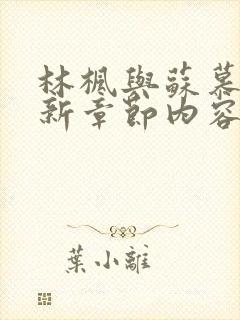 林楓與蘇慕
新章節內容
葉小離